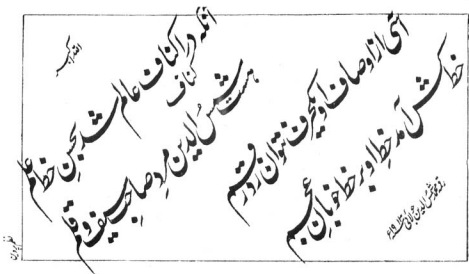 الله اکبر
آنکه در اکناف عالم شد بحسن خط علم
کناف
هست شمس الدین مرد صاحب سیف و قلم
از اوصاف او یکحرف نتوان زد رقم
خط کش آمد خط او بر خط خوبان عجم
شمس الدین